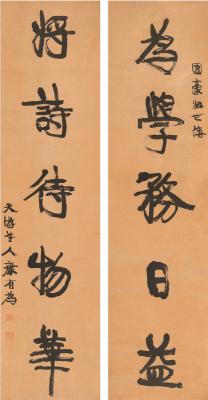 國豪仁世講
為學務日益
將詩待物華
天游老人康有為